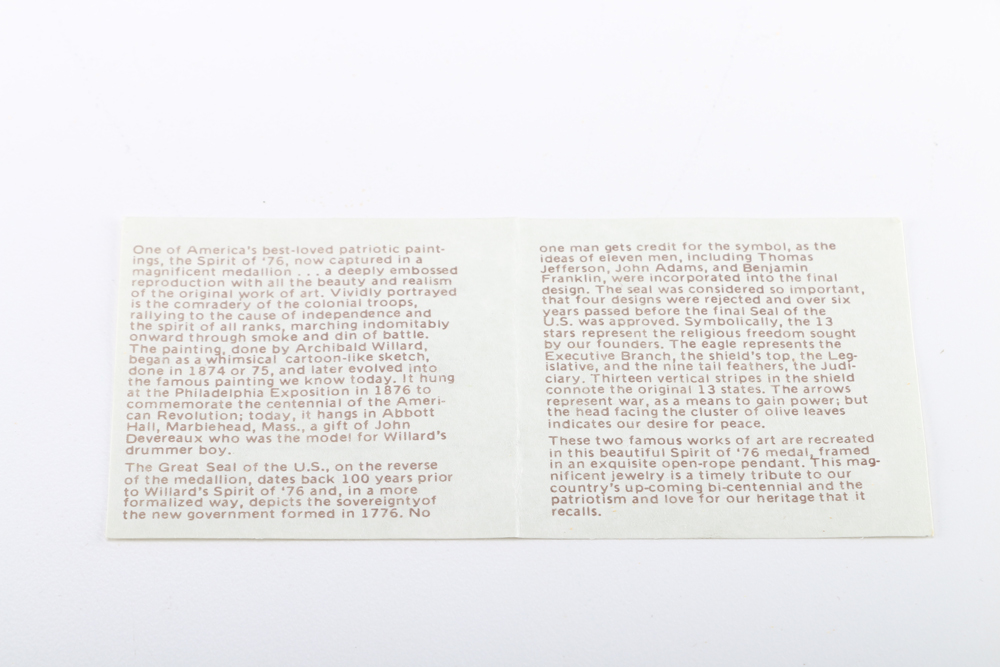 One of America's best-loved patriotic paint-
ings, the Spirit of '76, now captured in a
magnificent medallion . . . a deeply embossed
reproduction with all the beauty and realism
of the original work of art. Vividly portrayed
is the comradery of the colonial troops,
rallying to the cause of independence and
the spirit of all ranks, marching indomitably
onward through smoke and din of battle.
The painting, done by Archibald Willard,
began as a whimsical cartoon-like sketch,
done in 1874 or 75, and later evolved into
the famous painting we know today. It hung
at the Philadelphia Exposition in 1876 to
commemorate the centennial of the Ameri-
can Revolution; today, it hangs in Abbott
Hall, Marblehead, Mass., a gift of John
Devereaux who was the model for Willard's
drummer boy.
The Great Seal of the U.S., on the reverse
of the medallion, dates back 100 years prior
to Willard's Spirit of '76 and, in a more
formalized way, depicts the sovereigntyof
the new government formed in 1776. No
one man gets credit for the symbol, as the
ideas of eleven men, including Thomas
Jefferson, John Adams, and Benjamin
Franklin, were incorporated into the final
design. The seal was considered so important,
that four designs were rejected and over six
years passed before the final Seal of the
U.S. was approved. Symbolically, the 13
stars represent the religious freedom sought
by our founders. The eagle represents the
Executive Branch, the shield's top, the Leg-
islative, and the nine tail feathers, the Judi-
ciary. Thirteen vertical stripes in the shield
connote the original 13 states. The arrows
represent war, as a means to gain power; but
the head facing the cluster of olive leaves
indicates our desire for peace.
These two famous works of art are recreated
in this beautiful Spirit of '76 medal, framed
in an exquisite open-rope pendant. This mag-
nificent jewelry is a timely tribute to our
country's up-coming bi-centennial and the
patriotism and love for our heritage that it
recalls.